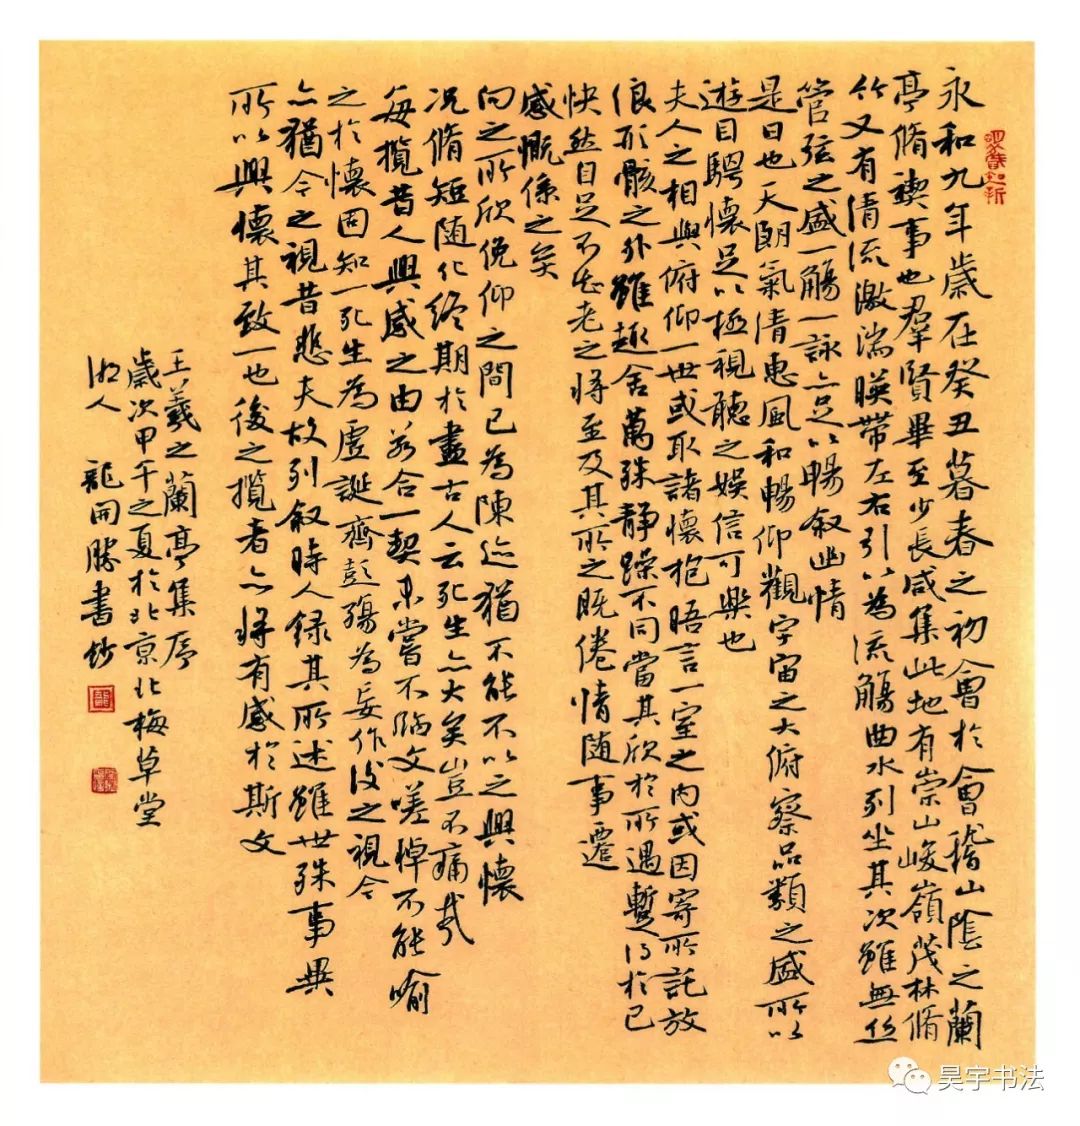 永和九年歲在癸丑暮春之初會於會稽山陰之蘭
亭脩禊事也羣賢畢至少長咸集此地有崇山峻嶺茂林脩
竹又有清流激湍暎帶左右引以為流觴曲水列坐其次雖無丝
管弦之盛一觴一詠亦足以暢叙幽情
是日也天朗氣清惠風和暢仰觀宇宙之大俯察品類之盛所以
遊目騁懷足以極視聽之娛信可樂也
夫人之相與俯仰一世或取諸懷抱晤言一室之內或因寄所託放
浪形骸之外雖趣舍萬殊静躁不同當其欣於所遇暫得於己
快然自足不知老之將至及其所之既倦情随事遷
感慨係之矣
向之所欣俛仰之間已為陳迹猶不能不以之興懷
况脩短随化終期於盡古人云死生亦大矣豈不痛哉
每攬昔人興感之由若合一契未嘗不臨文嗟悼不能喻
之於懷固知一死生為虚誕齊彭殤為妄作後之視今
亦猶今之視昔悲夫故列叙時人録其所述雖世殊事異
所以興懷其致一也後之攬者亦將有感於斯文
王羲之蘭亭集序
歲次甲午之夏於北京北梅草堂
湘人龍開勝書鈔
昊宇书法